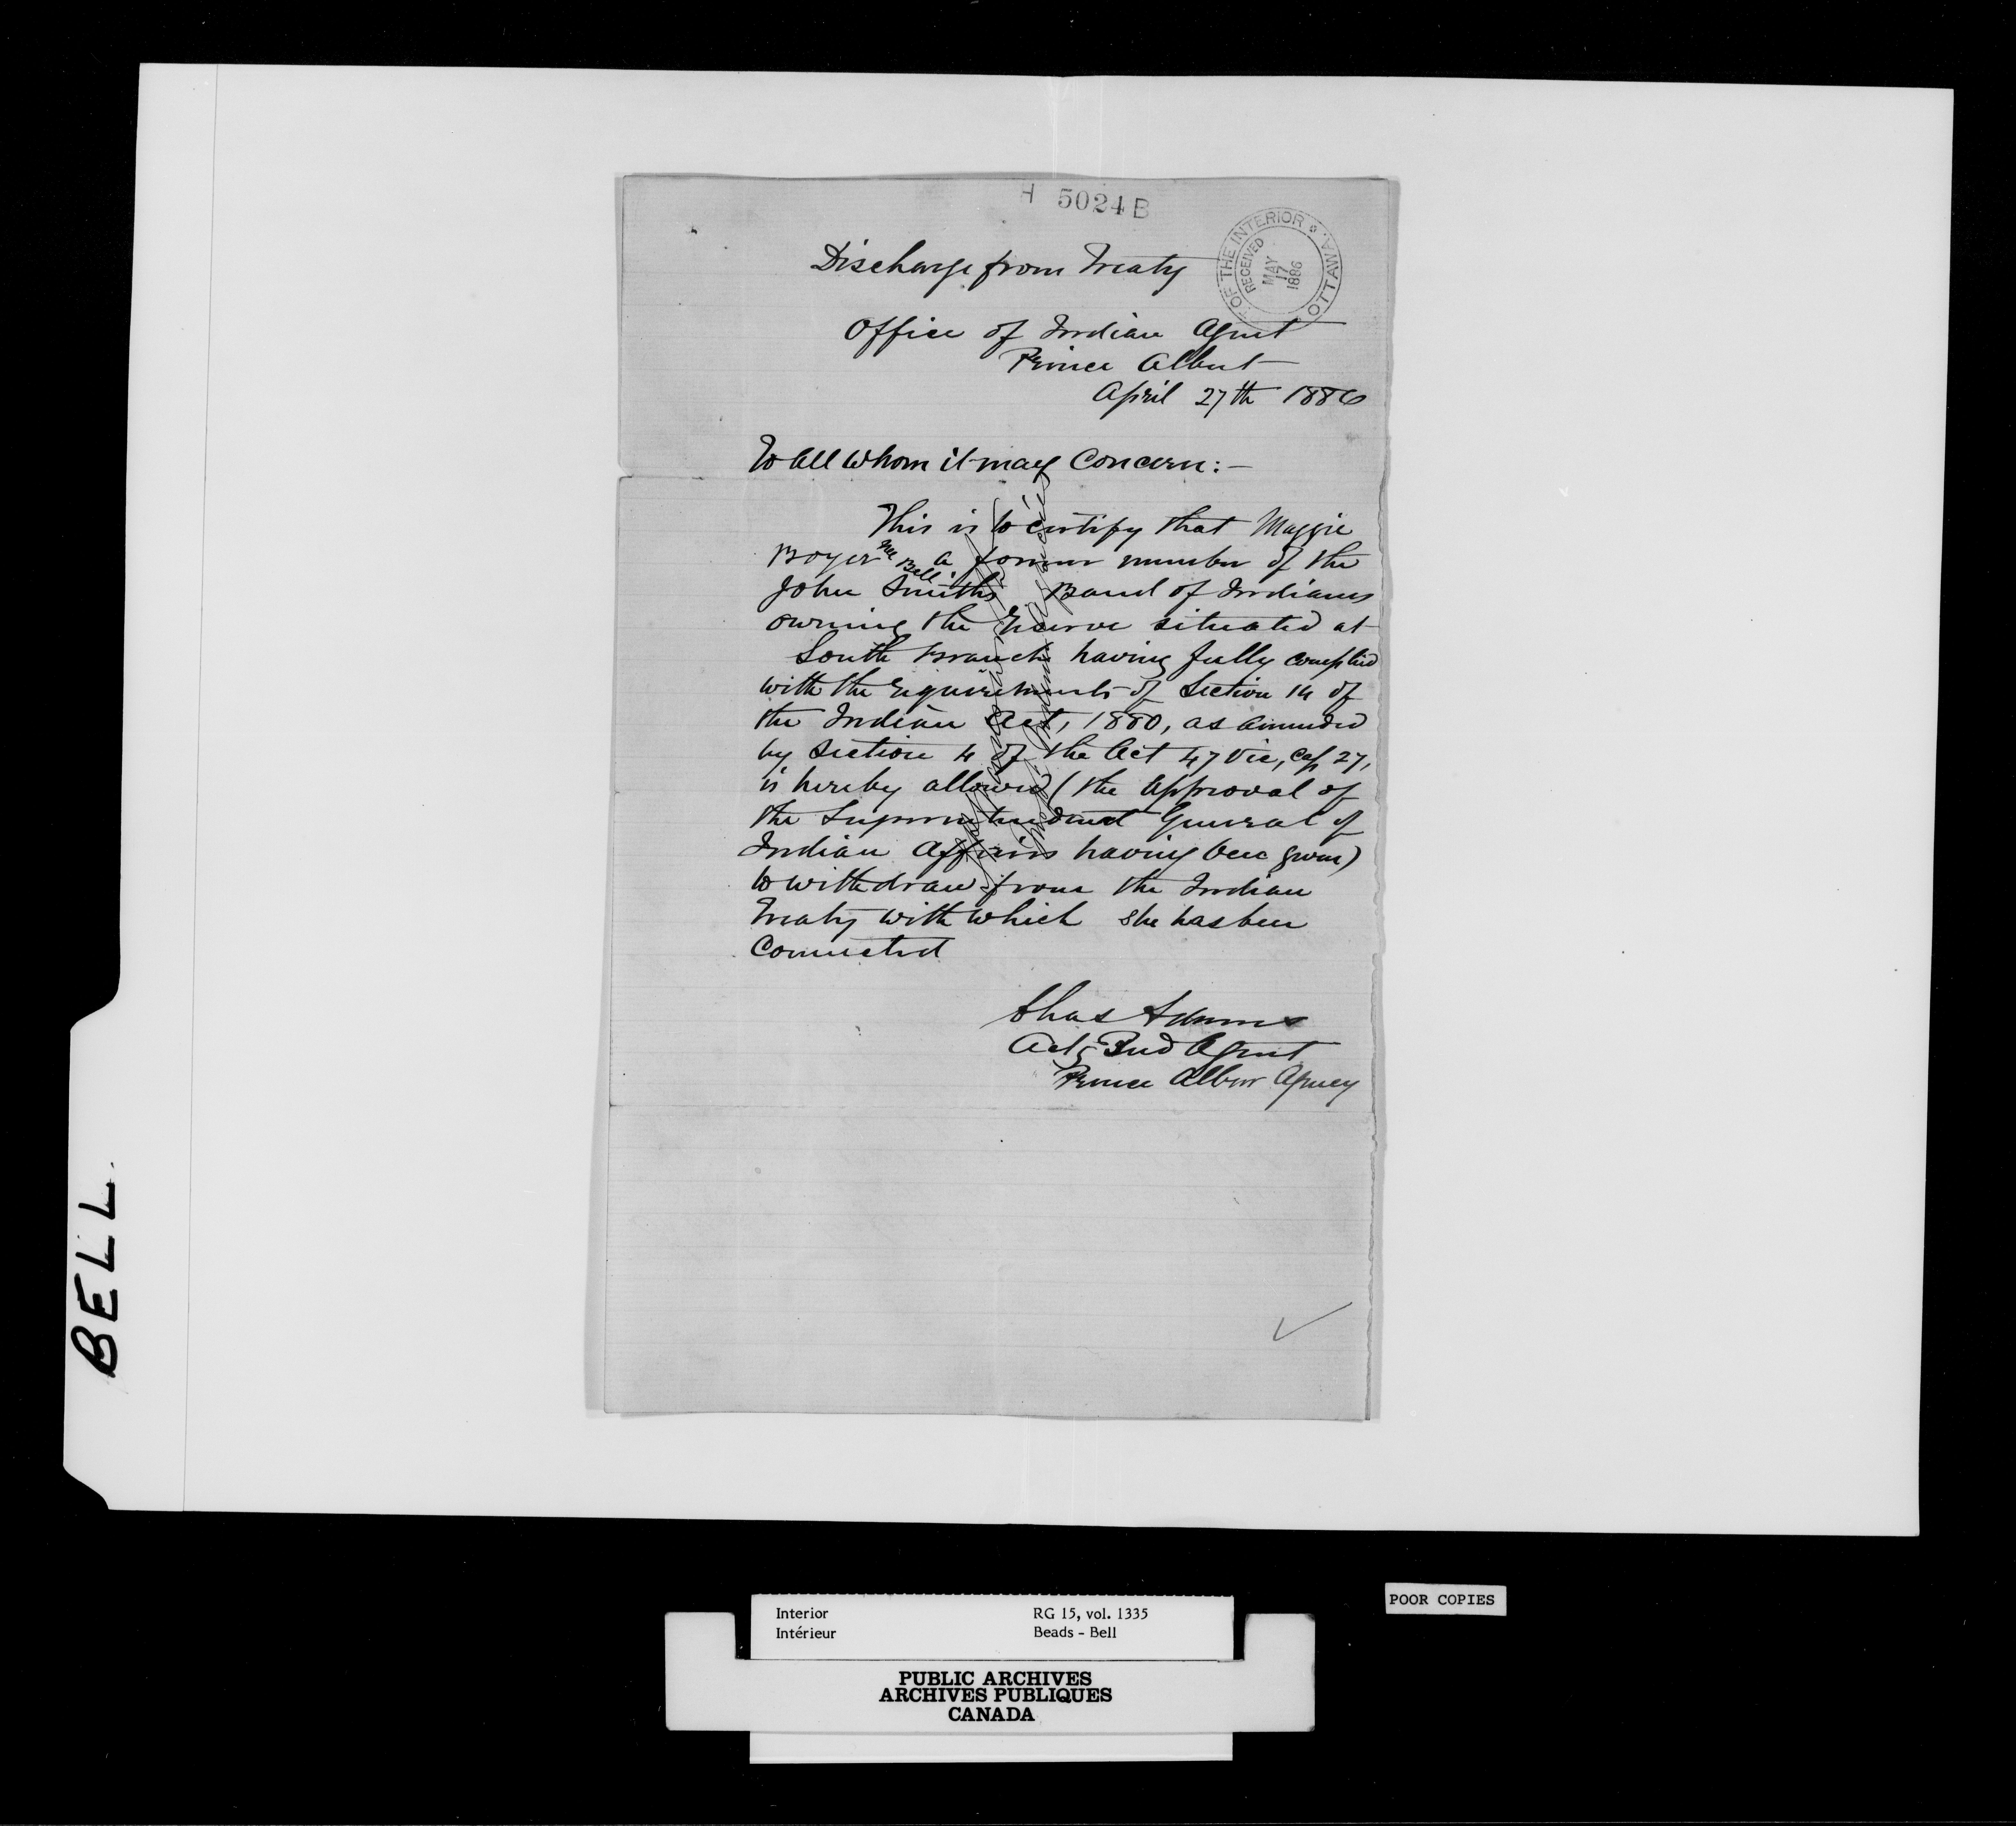 H 5024 B
OF THE INTERIOR
OTTAWA.
RECEIVED
MAY
17
1886
Discharge from Treaty
Office of Indian Agent
Prince Albert
April 27th 1886
To all whom it may Concern:—
This is to certify that Maggie
Boyer nee Bell a former member of the
John Smith's Band of Indians
owning the Reserve situated at
South Branch having fully complied
with the requirements of Section 14 of
the Indian Act, 1880, as amended
by Section 4 of the Act 47 Vic, Cap 27,
is hereby allowed (the approval of
the Superintendent General of
Indian Affairs having been given)
to withdraw from the Indian
Treaty with which she has been
Connected
Chas Adams
Actg Ind Agent
Prince Albert Agency
BELL.
POOR COPIES
Interior RG 15, vol. 1335
Intérieur Beads - Bell
PUBLIC ARCHIVES
ARCHIVES PUBLIQUES
CANADA